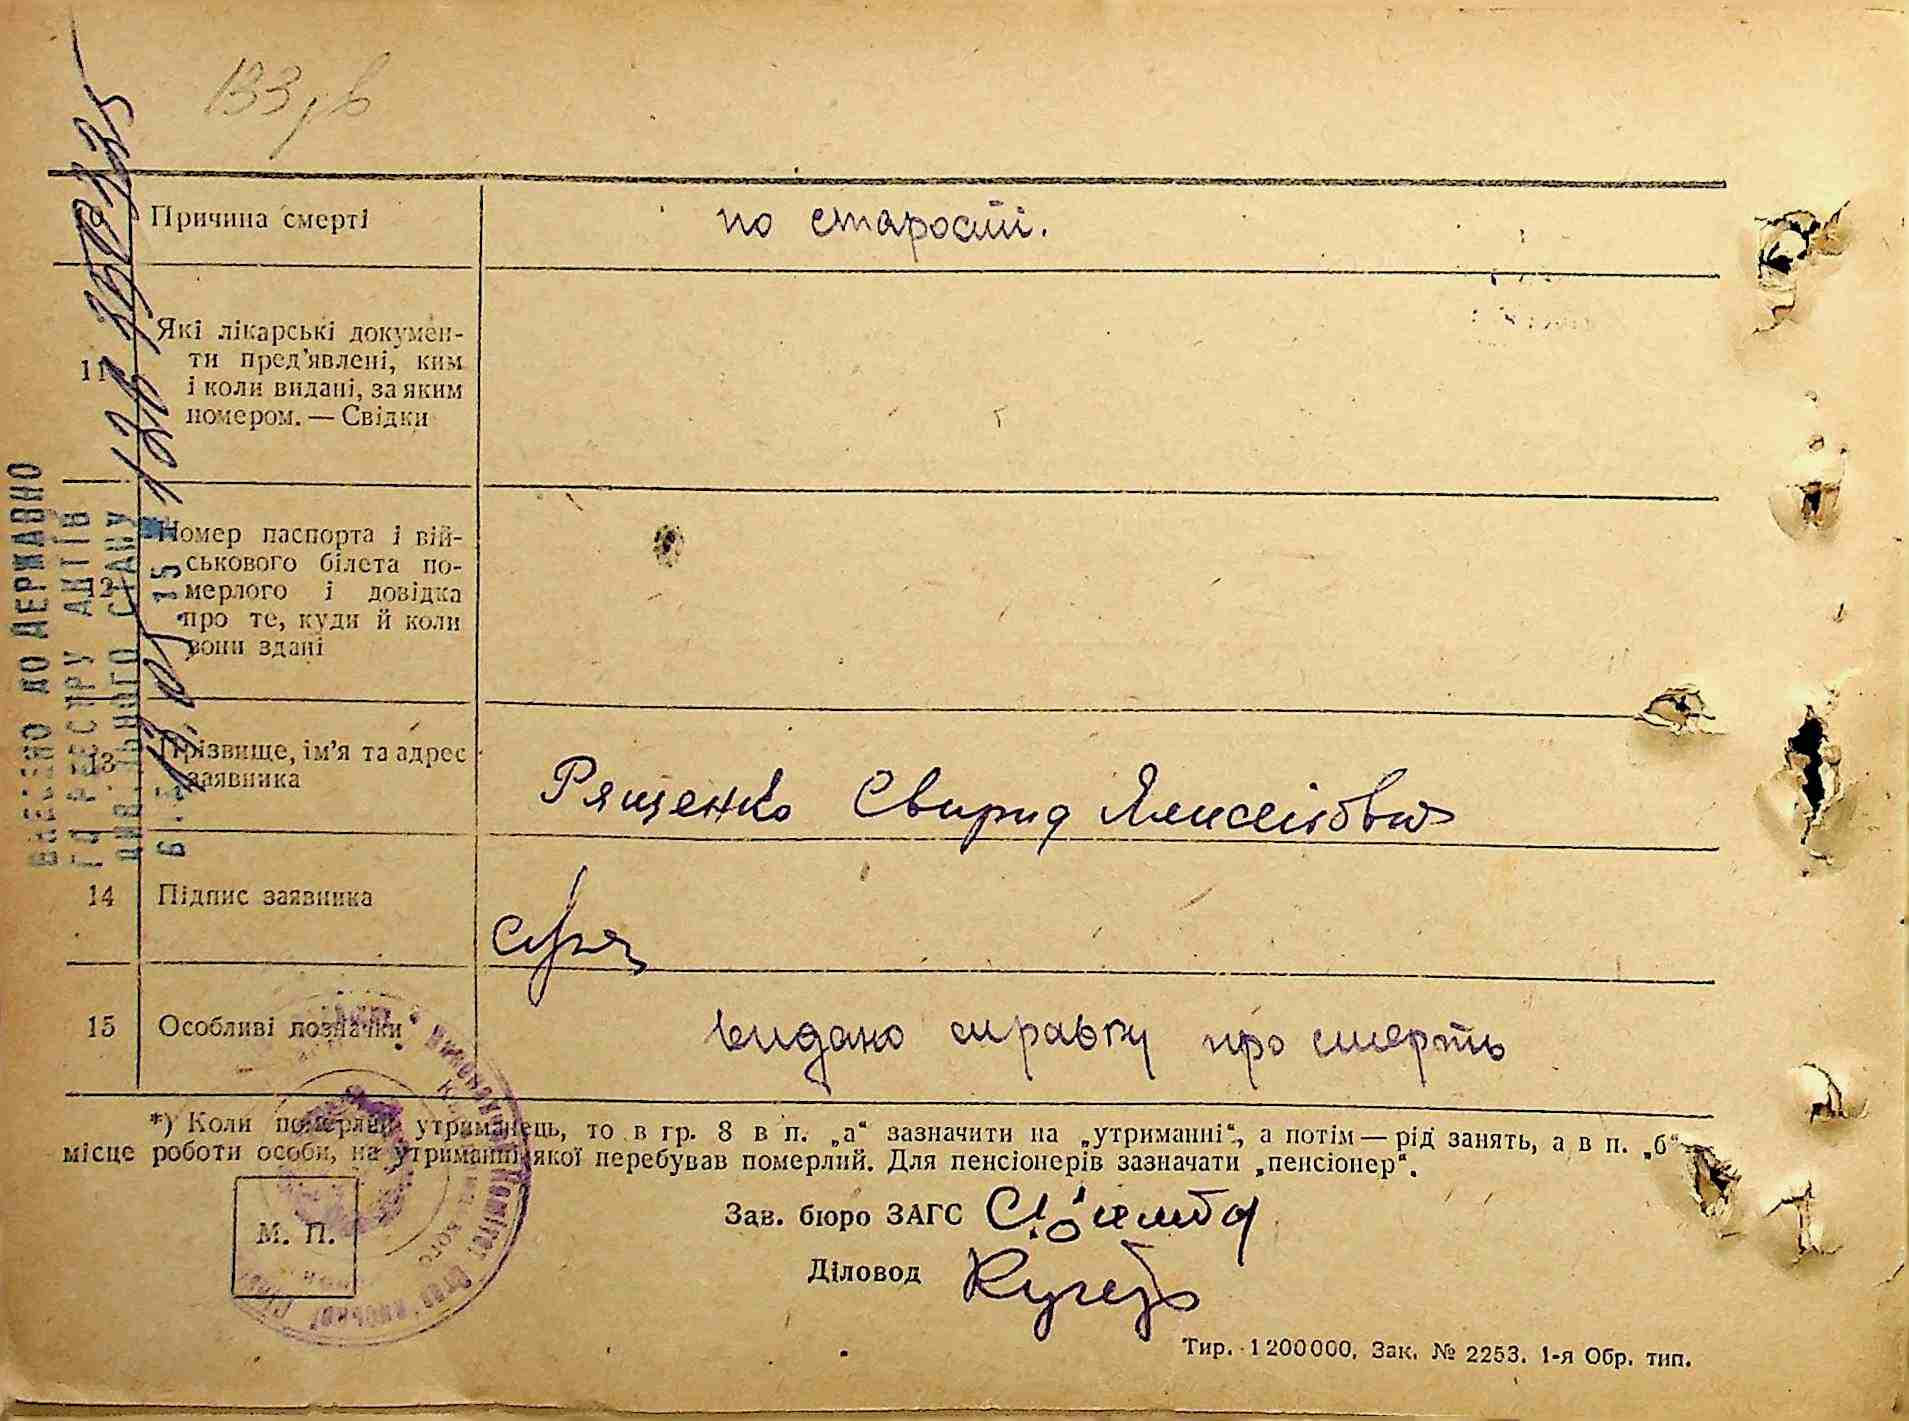 133
Причина смерті
по старості.
11
Які лікарські докумен-
ти пред'явлені, ким
і коли видані, за яким
номером. — Свідки
12
Номер паспорта і вій-
ськового білета по-
мерлого і довідка
про те, куди й коли
вони здані
13
Прізвище, ім'я та адрес
заявника
Рященко Свирид
14
Підпис заявника
15
Особливі позначки
видано справку про смерть
*) Коли померлий утриманець, то в гр. 8 в п. „а“ зазначити на „утриманні“, а потім — рід занять, а в п. „б“
місце роботи особи, на утриманні якої перебував померлий. Для пенсіонерів зазначати „пенсіонер“.
М. П.
Зав. бюро ЗАГС
Діловод
Тир. 1200000. Зак. № 2253. 1-я Обр. тип.
ВНЕСЕНО ДО ДЕРЖАВНО
ГО РЕЄСТРУ АКТІВ
ЦИВІЛЬНОГО СТАНУ